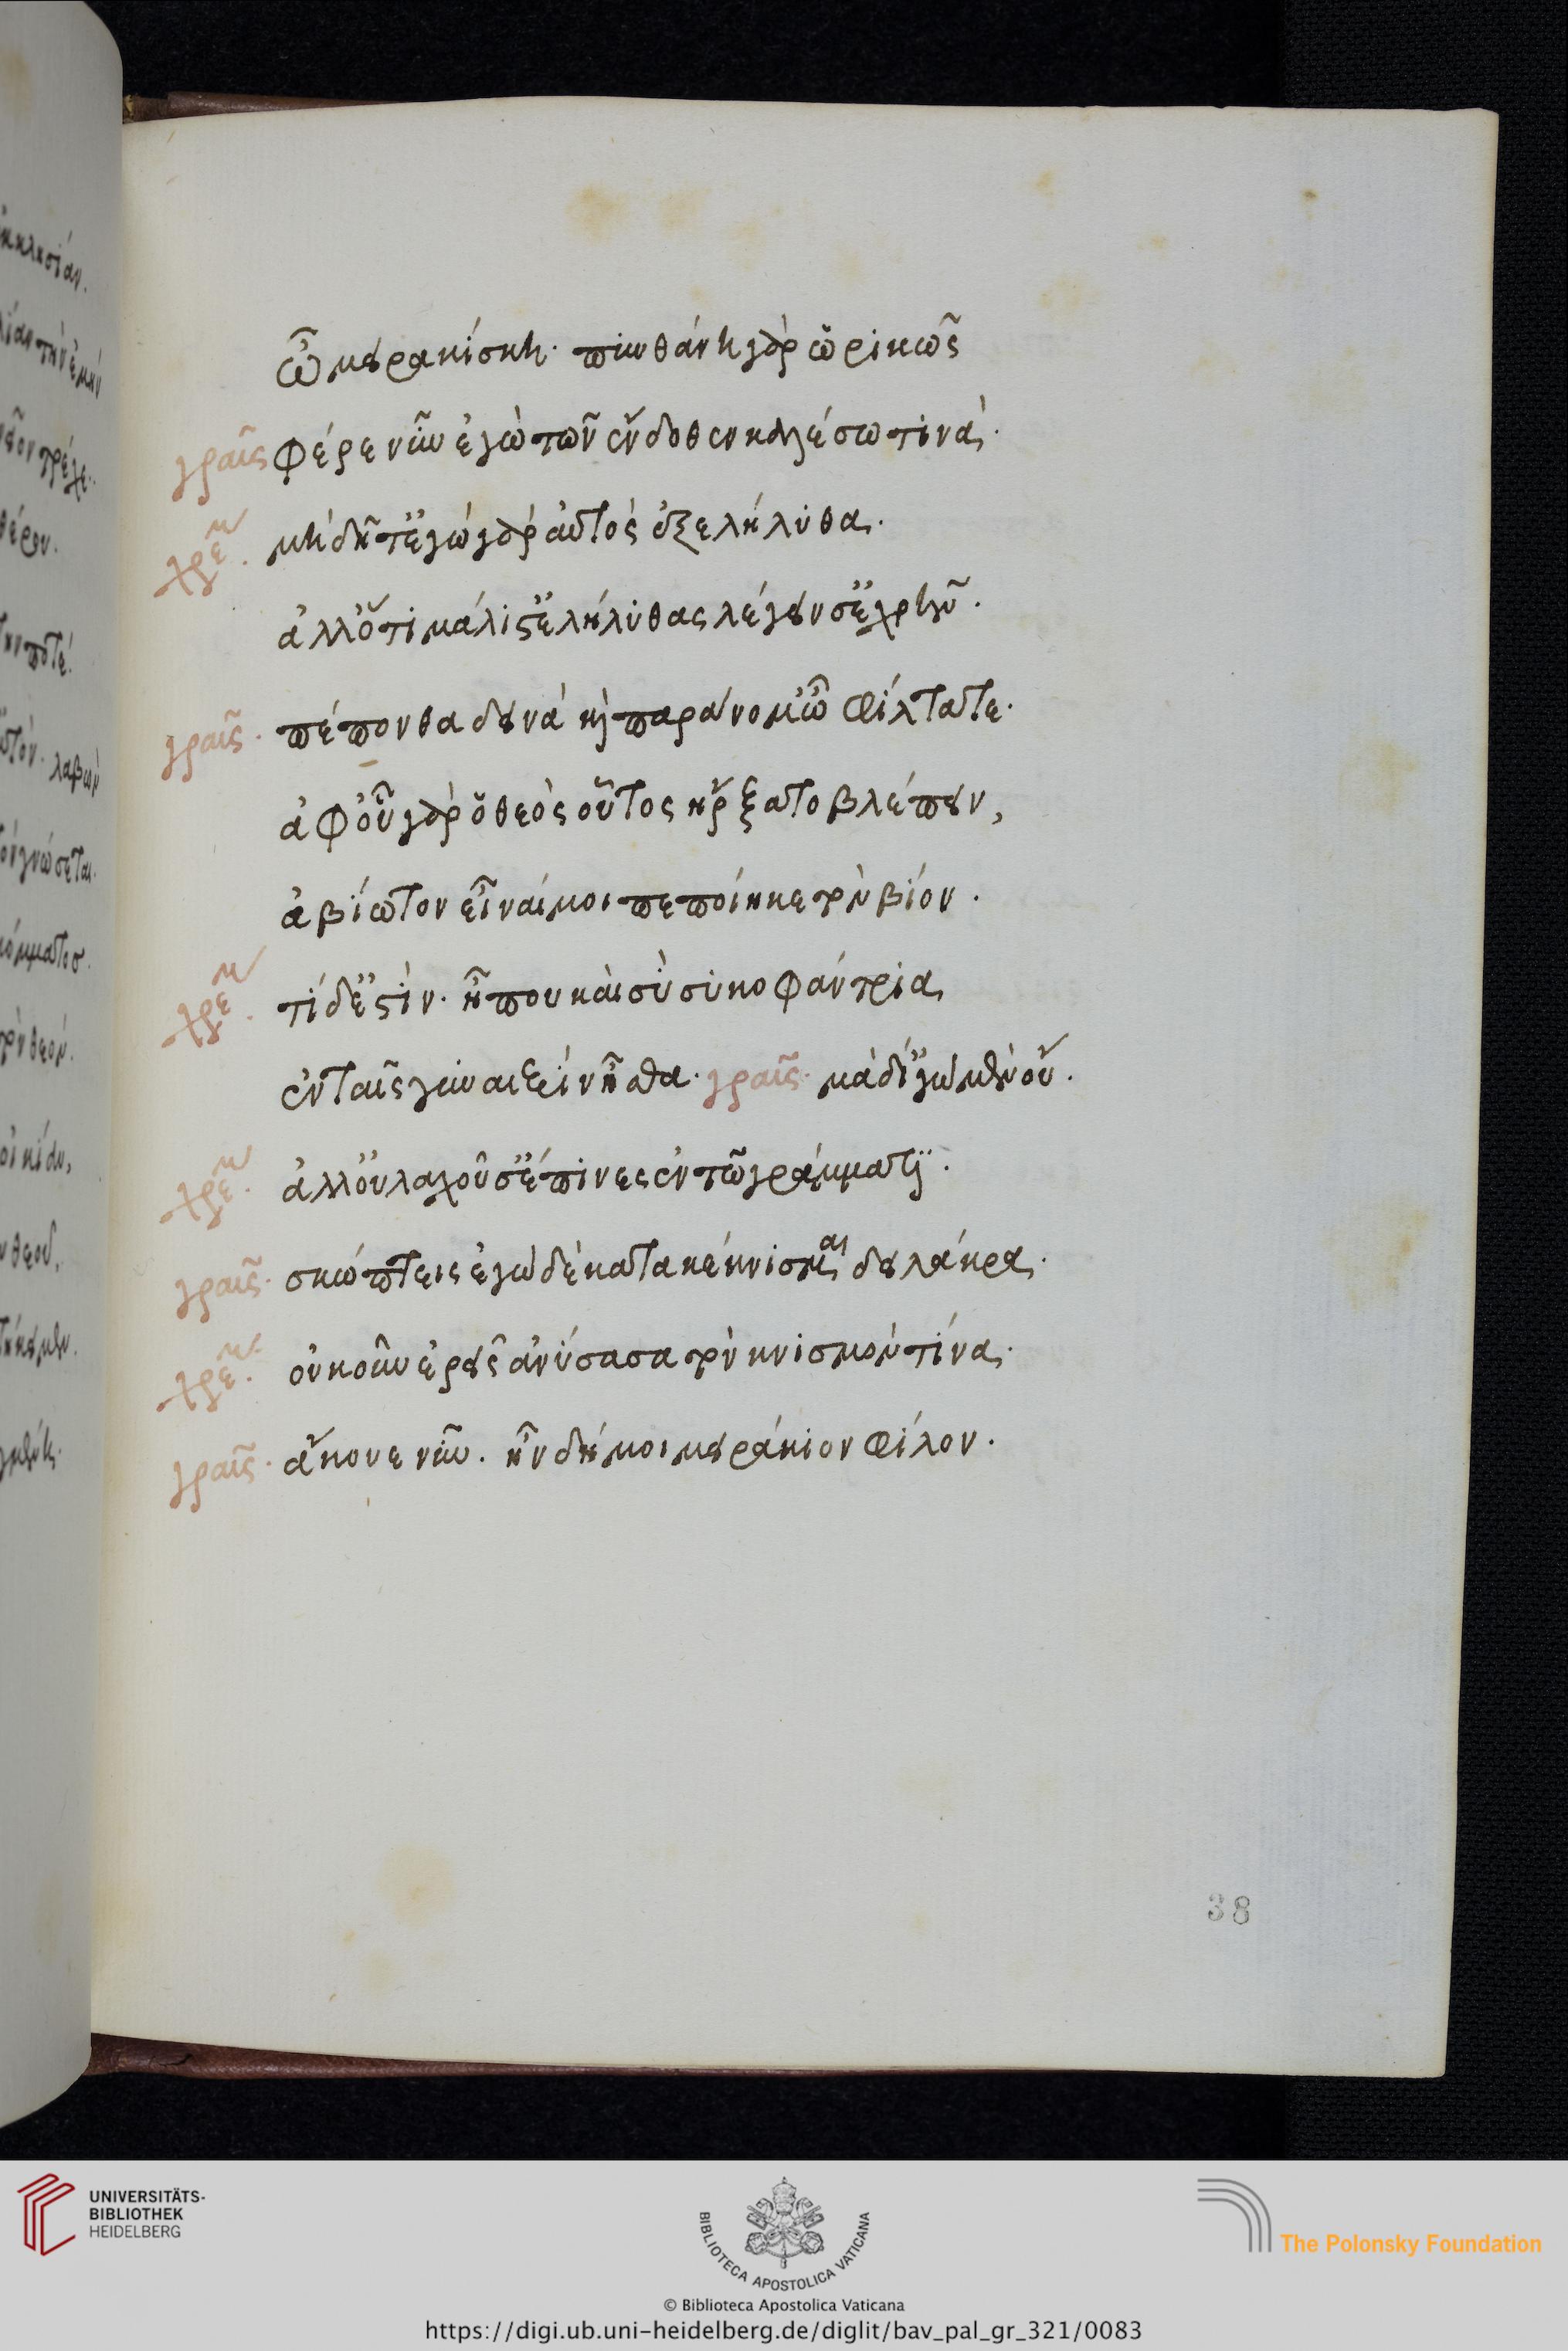 ὦ μειρακίσκη· πυνθάνη γὰρ ὡρικῶς
γραῦς φέρε νῦν ἐγὼ τῶν ἔνδοθεν καλέσω τινά·
χρεμ. μὴ δῆτ' ἐγὼ γὰρ αὐτὸς ἐξελήλυθα.
ἀλλ' ὅτι μάλιστ' ἐλήλυθας λέγειν σ' ἐχρῆν.
γραῦς. πέπονθα δεινὰ καὶ παράνομ' ὦ φίλτατε.
ἀφ' οὗ γὰρ ὁ θεὸς οὗτος ἤρξατο βλέπειν,
ἀβίωτον εἶναί μοι πεποίηκε τὸν βίον.
χρεμ. τί δ' ἔστιν. ἦ που καὶ σὺ συκοφάντρια
ἐν ταῖς γυναιξὶν ἦσθα. γραῦς. μὰ δί' ἐγὼ μὲν οὔ.
χρεμ. ἀλλ' οὐ λαχοῦσ' ἔπινες ἐν τῶ γράμματι.
γραῦς. σκώπτεις ἐγὼ δὲ κατακέκνισμαι δειλάκρα.
χρεμ. οὐκοῦν ἐρεῖς ἀνύσασα τὸν κνισμὸν τίνα.
γραῦς. ἄκουε νῦν. ἦν δή μοι μειράκιον φίλον.
38
UNIVERSITÄTS-
BIBLIOTHEK
HEIDELBERG
BIBLIOTECA APOSTOLICA VATICANA
The Polonsky Foundation
© Biblioteca Apostolica Vaticana
https://digi.ub.uni-heidelberg.de/diglit/bav_pal_gr_321/0083